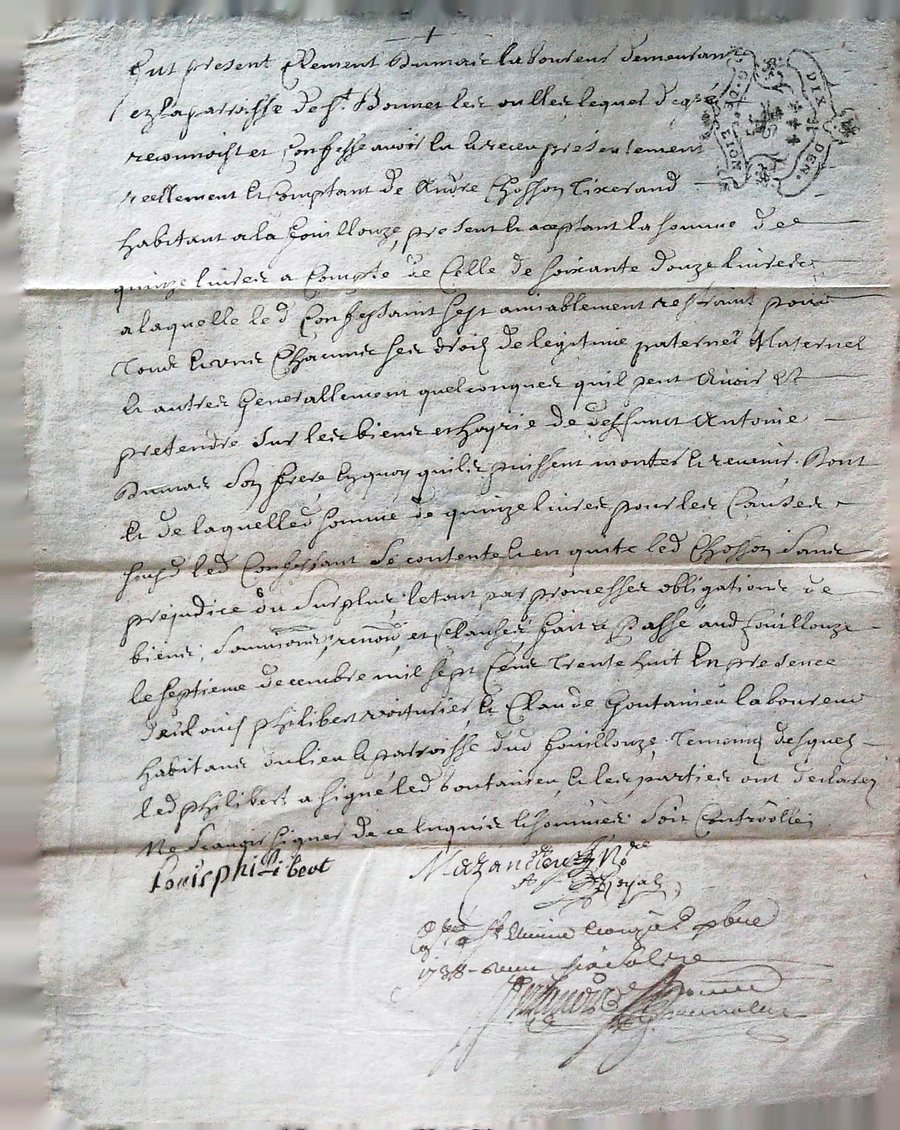 fut present Clement Dumas laboureur demeurant
en la parroisse de st Bonnet les oulles lequel de gré
reconnoist et Confesse avoir eu et receu presentement
reellement et comptant de André Chosson Tixerand
habitant a la fouillouze, present et aceptant la somme de
quinze livres a Compte de Celle de soixante douze livres
a laquelle led Confessant sest amiablement restraint pour
Tous et uns Chacuns ses droits de legitime paternel Maternel
et autres Generallement quelconques quil peut avoir et
pretendre sur les biens et hoyrie de deffunct Antoine
Dumas son frere, en quoy quils puissent monter et revenir. Dont
et de laquelle d somme de quinze livres pour les Causes
susd led Confessant se contente et en quite led Chosson sans
prejudice du surplus, le tout par promesses obligations de
biens, soumons, renons, et Clauses fait & Passé aud fouillouze
le septieme decembre mil sept Cens Trente huit En presence
de Louis philibert voiturier, et Claude Goutanieu laboureur
habitans du lieu et parroisse dud fouillouze Temoins desquels
led philibert a signé led Goutanieu, et les parties ont declarés
Ne scavoir signer de ce enquis et sommés soit Controllé
Louis philibert
Royal
1738
DIX DEN.
G. DE LION